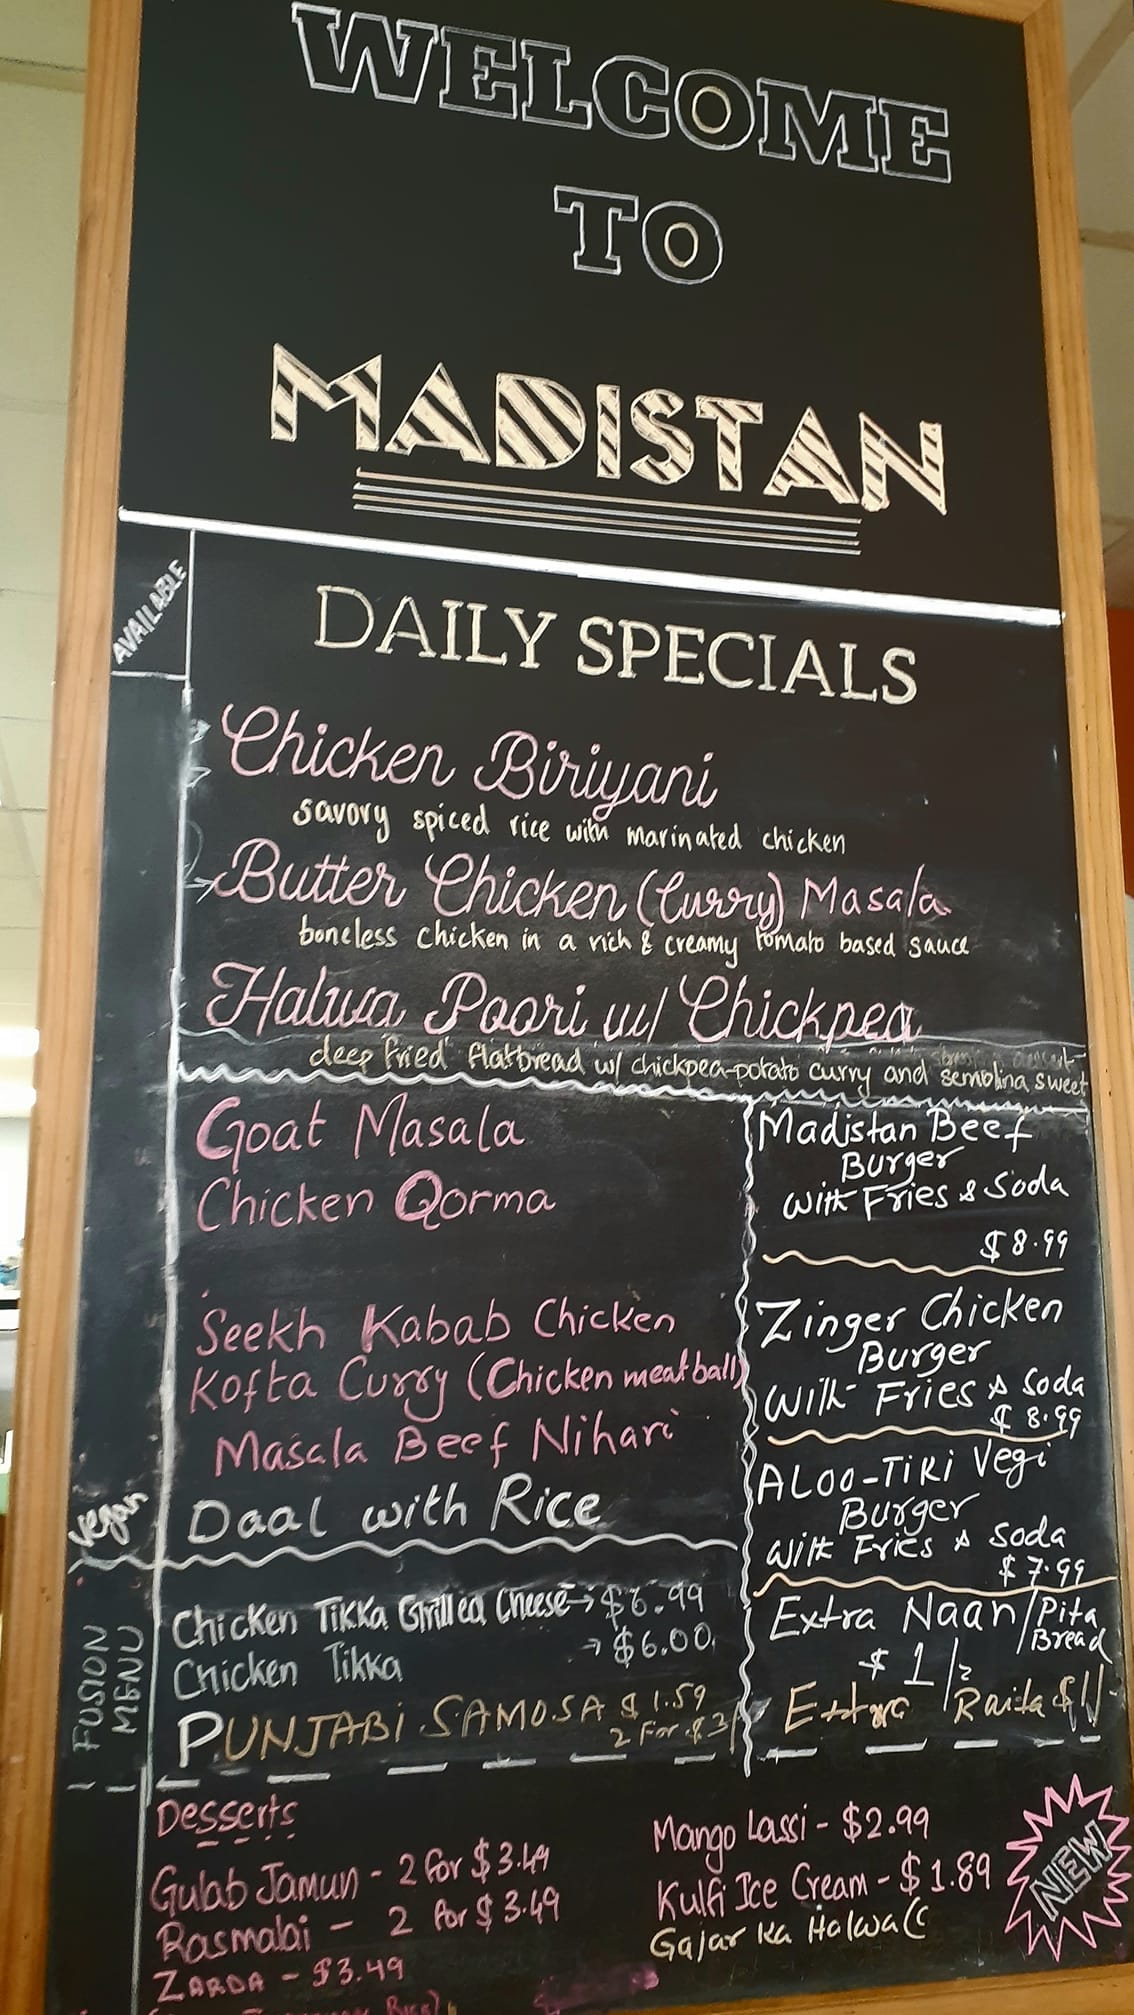 WELCOME
TO
MADISTAN
AVAILABLE
DAILY SPECIALS
Chicken Biriyani
savory spiced rice with marinated chicken
Butter Chicken (Curry) Masala
boneless chicken in a rich & creamy tomato based sauce
Halwa Poori w/ Chickpea
deep fried flatbread w/ chickpea-potato curry and semolina sweet
Goat Masala
Chicken Qorma
Seekh Kabab Chicken
Kofta Curry (Chicken meatball)
Masala Beef Nihari
vegan
Daal with Rice
Madistan Beef
Burger
with Fries & Soda
$8.99
Zinger Chicken
Burger
with Fries & Soda
$8.99
ALOO-TiKi Vegi
Burger
with Fries & Soda
$7.99
Extra Naan/Pita
Bread
$1/2
Extra Raita $1/-
FUSION
MENU
Chicken Tikka Grilled Cheese → $6.99
Chicken Tikka → $6.00
PUNJABi SAMOSA $1.59
2 For $3/-
Desserts
Gulab Jamun - 2 for $3.49
Rasmalai - 2 for $3.49
ZARDA - $3.49
Rice)
Mango Lassi - $2.99
Kulfi Ice Cream - $1.89
Gajar ka Halwa (
NEW